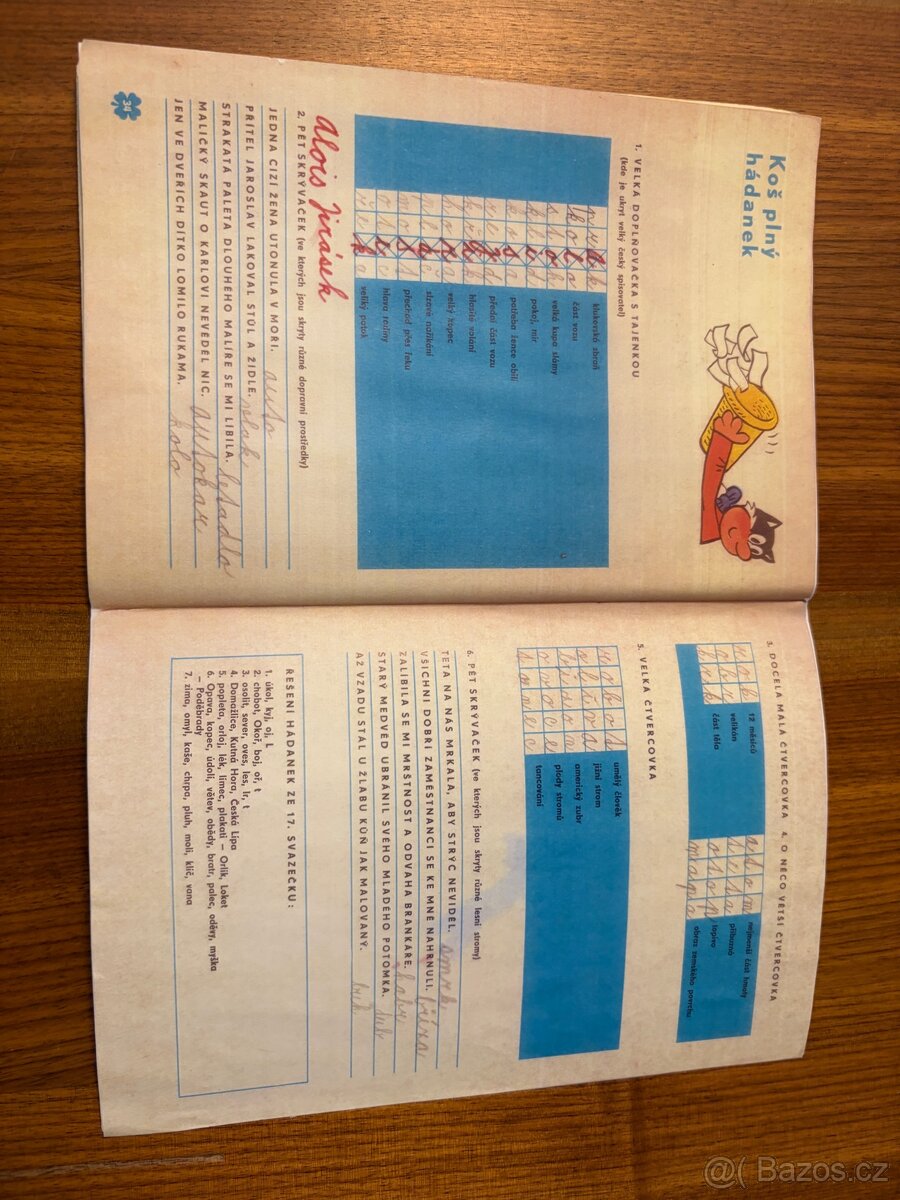 Koš plný
hádanek
1. VELKÁ DOPLŇOVAČKA S TAJENKOU
(kde je ukryt velký český spisovatel)
klukovská zbraň
část vozu
velká kupa slámy
pokoj, mír
potřeba žence obilí
přední část vozu
hlasité volání
velký kopec
slzavé naříkání
přechod přes řeku
hlava rostliny
veliký potok
Alois Jirásek
2. PĚT SKRÝVAČEK (ve kterých jsou skryty různé dopravní prostředky)
JEDNA CIZÍ ŽENA UTONULA V MOŘI. auto
PŘÍTEL JAROSLAV LAKOVAL STŮL A ŽIDLE. vlak
STRAKATÁ PALETA DLOUHÉHO MALÍŘE SE MI LÍBILA. letadlo
MALIČKÝ SKAUT O KARLOVI NEVĚDĚL NIC. autokar
JEN VE DVEŘÍCH DÍTKO LOMILO RUKAMA. kolo
34
3. DOCELA MALÁ ČTVERCOVKA
rok 12 měsíců
obr velikán
krk část těla
4. O NĚCO VĚTŠÍ ČTVERCOVKA
atom nejmenší část hmoty
teta příbuzná
otop topivo
mapa obraz zemského povrchu
5. VELKÁ ČTVERCOVKA
robot umělý člověk
oliva jižní strom
bison americký zubr
ovoce plody stromů
tanec tancování
6. PĚT SKRÝVAČEK (ve kterých jsou skryty různé lesní stromy)
TETA NA NÁS MRKALA, ABY STRÝC NEVIDĚL. smrk
VŠICHNI DOBŘÍ ZAMĚSTNANCI SE KE MNĚ NAHRNULI. bříza
ZALÍBILA SE MI MRŠTNOST A ODVAHA BRANKÁŘE. habr
STARÝ MEDVĚD UBRÁNIL SVÉHO MLADÉHO POTOMKA. dub
AŽ VZADU STÁL U ŽLABU KŮŇ JAK MALOVANÝ. buk
ŘEŠENÍ HÁDANEK ZE 17. SVAZEČKU:
1. úkol, kyj, oj, L
2. chobot, Okoř, boj, oř, t
3. osolit, sever, oves, les, ir, t
4. Domažlice, Kutná Hora, Česká Lípa
5. popleta, orloj, lék, límec, plakati – Orlík, Loket
6. Opava, kopec, údolí, větev, obědy, bratr, palec, oděvy, myška
– Poděbrady
7. zima, omyl, kaše, chrpa, pluh, moli, klíč, vana
@( Bazos.cz